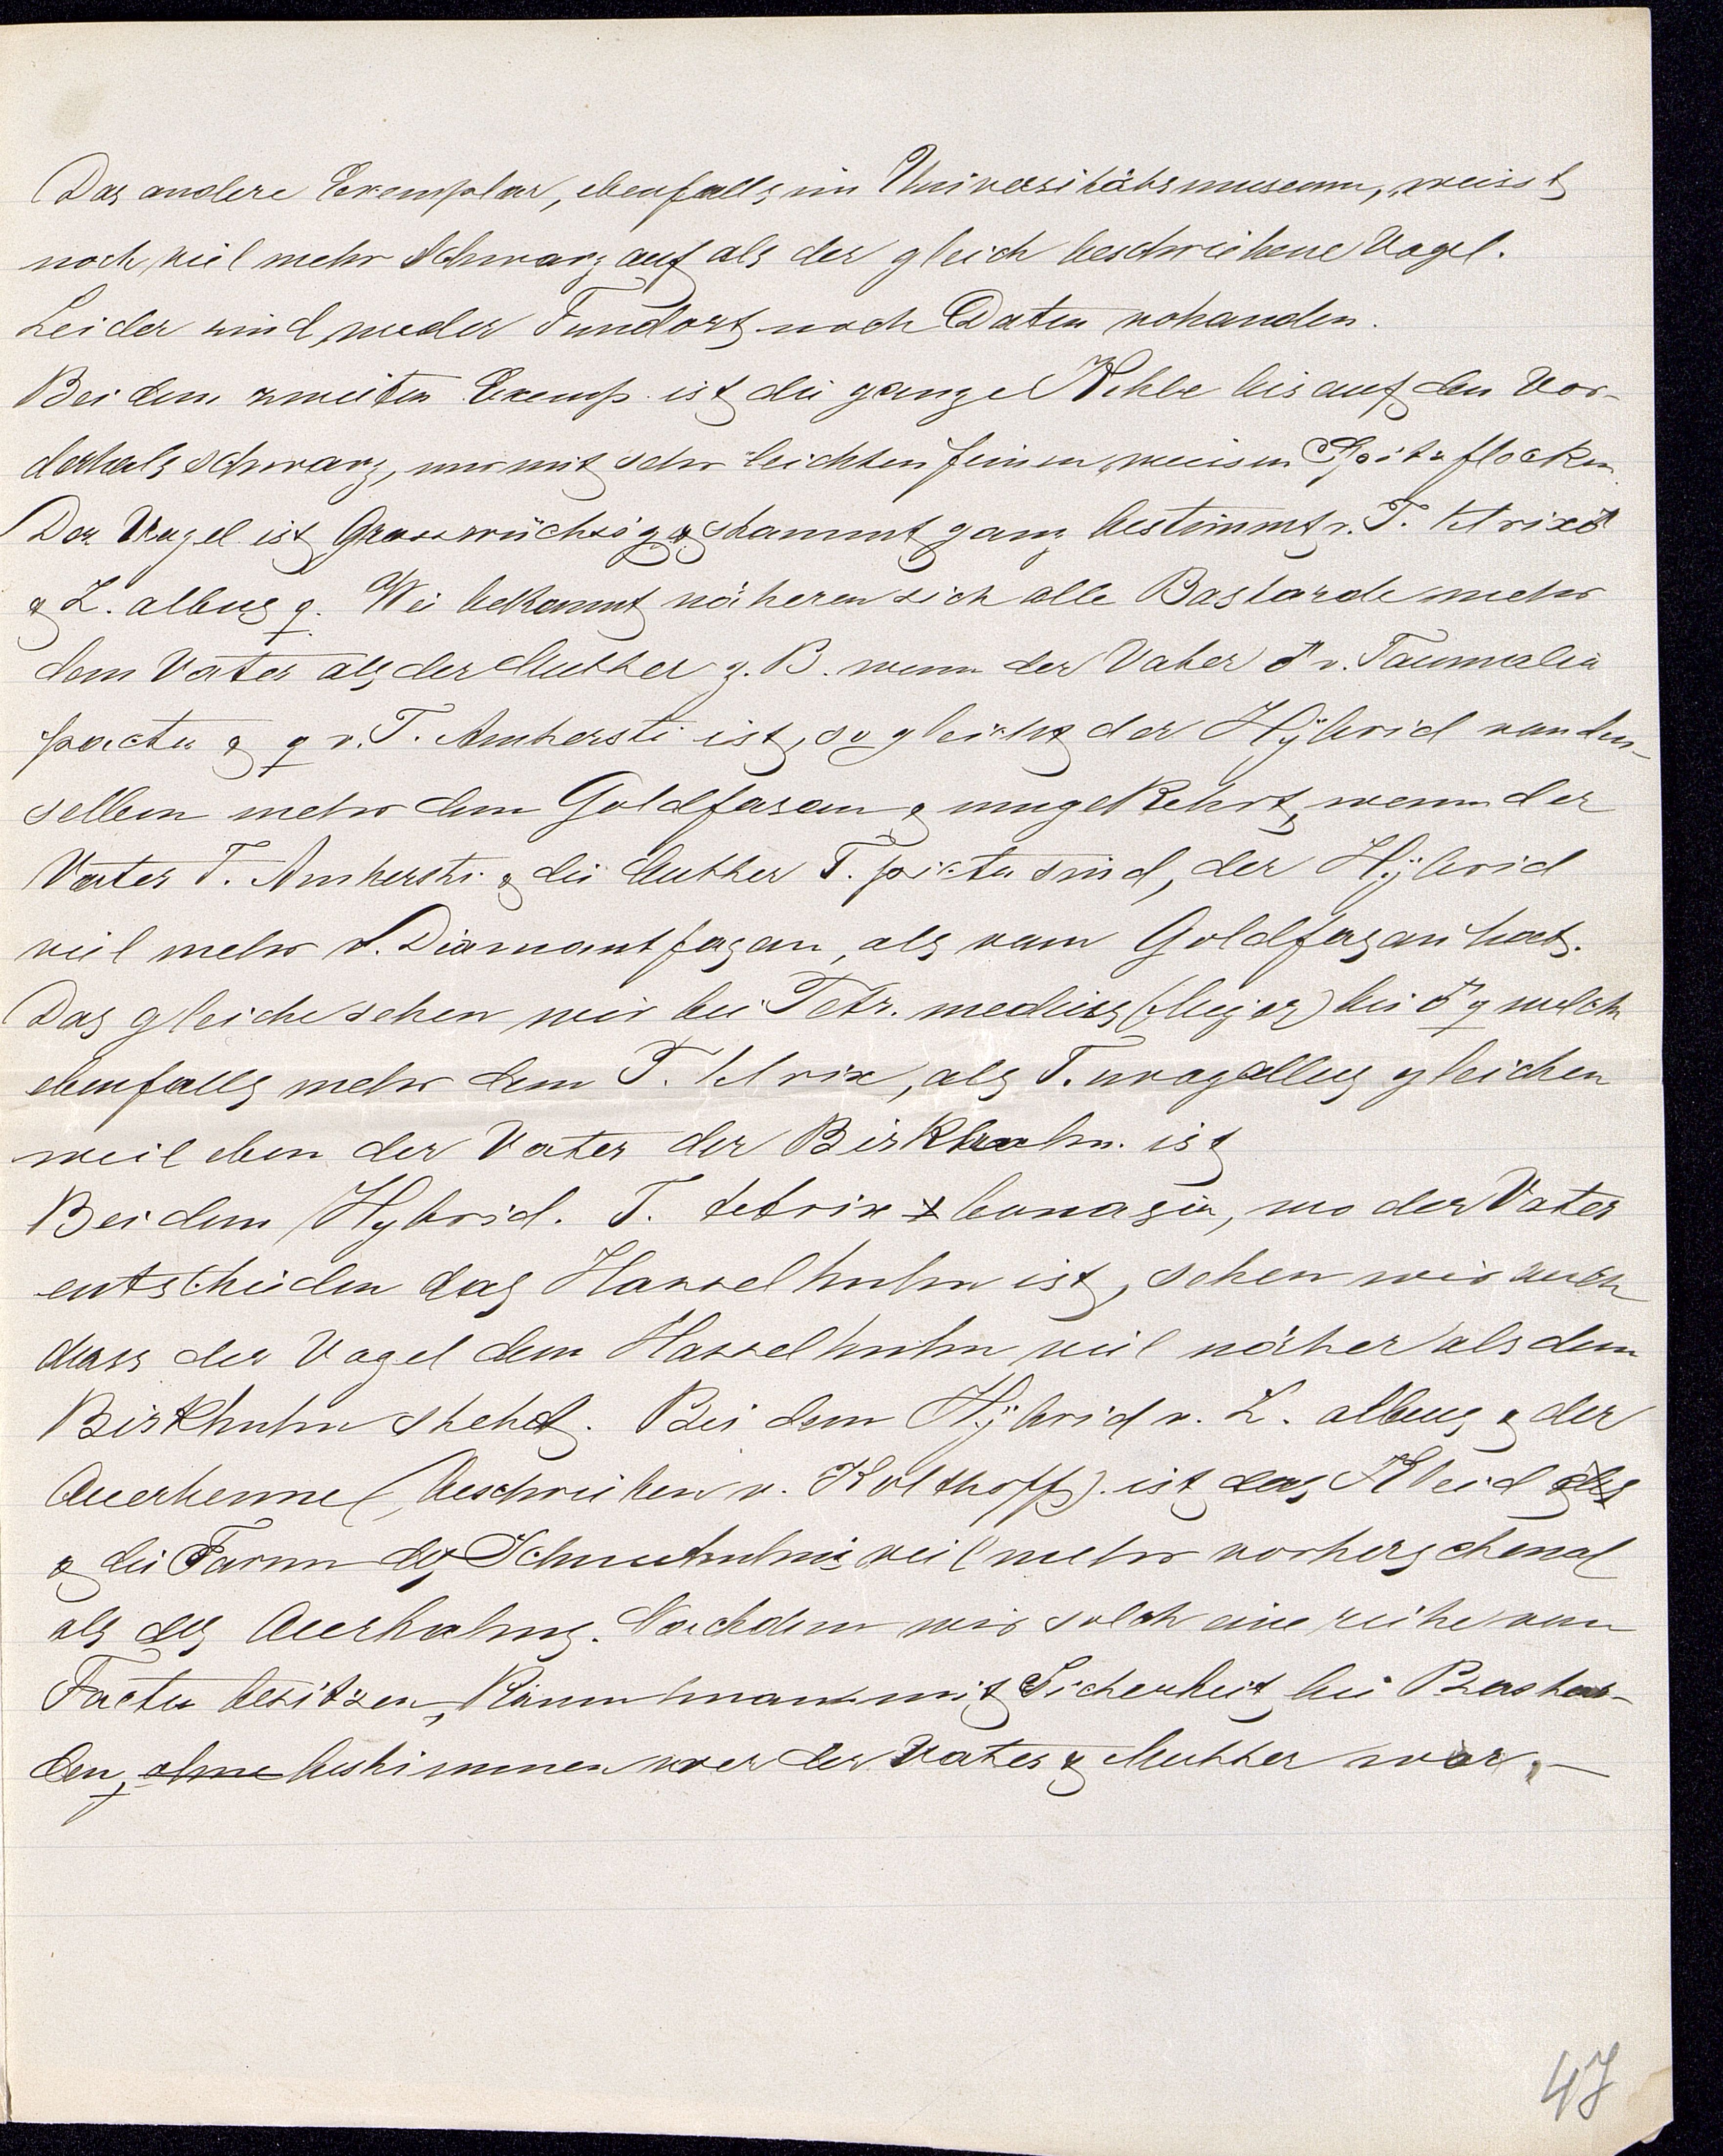 Das andere Exemplar, ebenfalls im Universitätsmuseum, weisst
noch viel mehr Schwarz auf als der gleich beschriebene Vogel.
Leider sind weder Fundort noch Daten vohanden.
Bei dem zweiten Exemp. ist die ganze Kehle bis auf den Vor-
derhals schwarz, nur mit sehr leichten feinen weissen Spitzflecken.
Der Vogel ist Grosswüchsig & stammt ganz bestimmt v. T. tetrix ♂
& L. albus ♀. Wie bekannt näheren sich alle Bastarde mehr
dem Vater als der Mutter z. B. wenn der Vater ♂ v. Taumalia
picta & ♀ v. T. Amhersti ist, so gleicht der Hÿbrid von den-
selben mehr dem Goldfasan & umgekehrt, wenn der
Vater T. Amhersti & die Mutter T. picta sind, der Hÿbrid
viel mehr v. Diamantfasan, als vom Goldfasan hat.
Das gleiche sehen wir bei Tetr. medius (Meyer) bei ♂ ♀ welch
ebenfalls mehr dem T. tetrix, als T. urogallus gleichen
weil eben der Vater der Birkhahn ist
Bei dem Hybrid. T. tetrix × bonasia, wo der Vater
entschieden das Hasselhuhn ist, sehen wir auch
dass der Vogel dem Hasselhuhn viel näher als dem
Birkhuhn stehet. Bei dem Hÿbrid v. L. albus & der
Auerhenne (beschrieben v. Kolthoff). ist das Kleid des
& die Form des Schneehuhns viel mehr vorherschend
als des Auerhahns. Nachdem wir solch eine reihe von
Facta besitzen, kann man mit Sicherheit bei Bastar-
den, ohne bestimmen wer der Vater & Mutter war. —
47